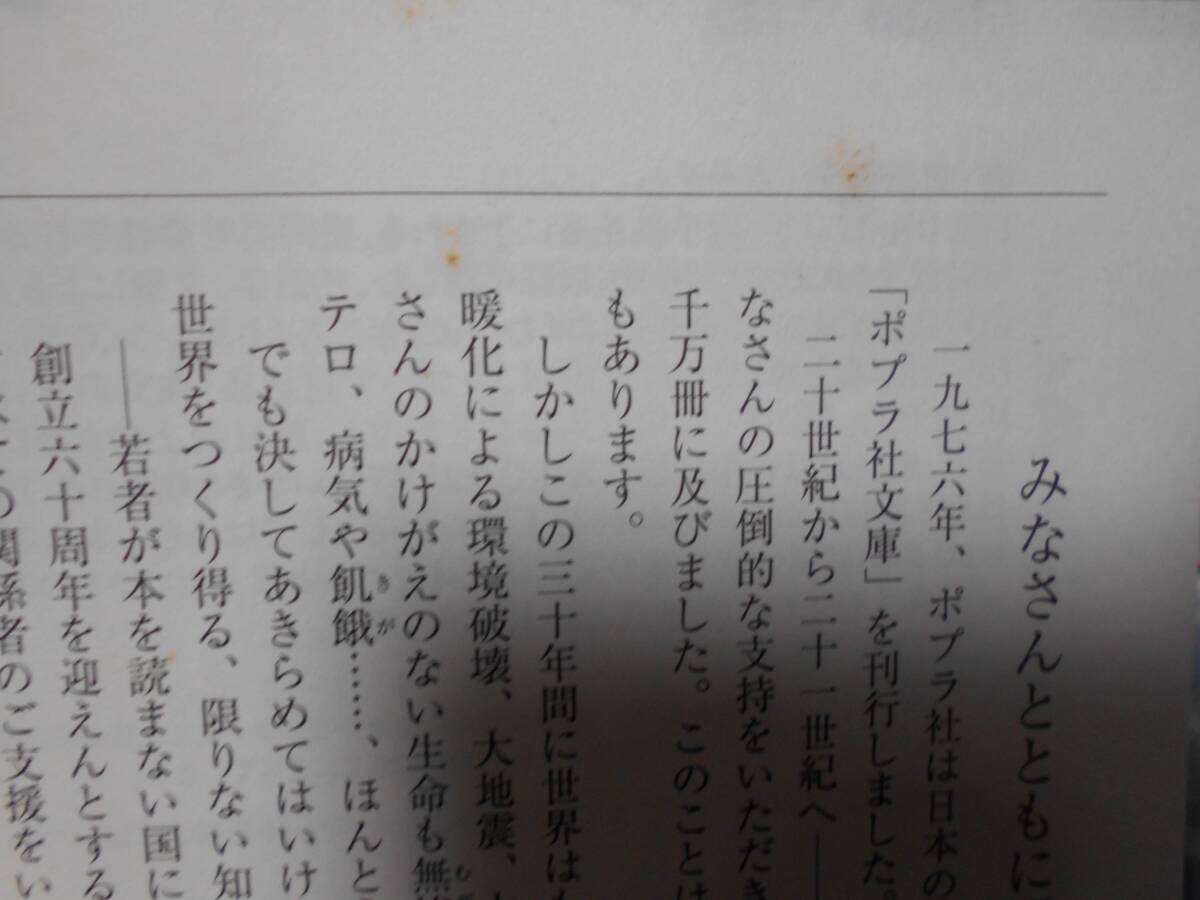 みなさんとともに
一九七六年、ポプラ社は日本の
「ポプラ社文庫」を刊行しました。
二十世紀から二十一世紀へ——
なさんの圧倒的な支持をいただき
千万冊に及びました。このことは
もあります。
しかしこの三十年間に世界は
暖化による環境破壊、大地震、
さんのかけがえのない生命も無
テロ、病気や飢餓きが……、ほんと
でも決してあきらめてはいけ
世界をつくり得る、限りない知
——若者が本を読まない国に
創立六十周年を迎えんとする
の関係者のご支援をい